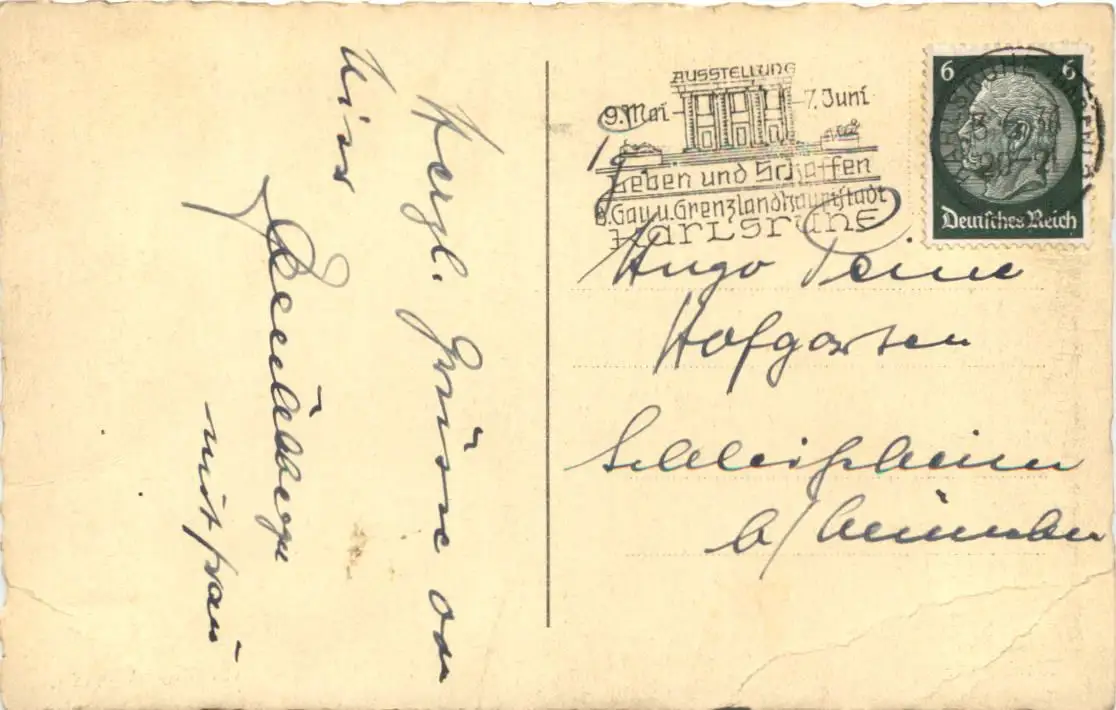 Herzl. Grüsse von
mit Frau
AUSSTELLUNG
9. Mai 7. Juni
Leben und Schaffen
d. Gau u. Grenzlandhauptstadt
Karlsruhe
6 6
Deutsches Reich
KARLSRUHE
20-21
Hugo
Hofgarten
Schleissheim
b/ München